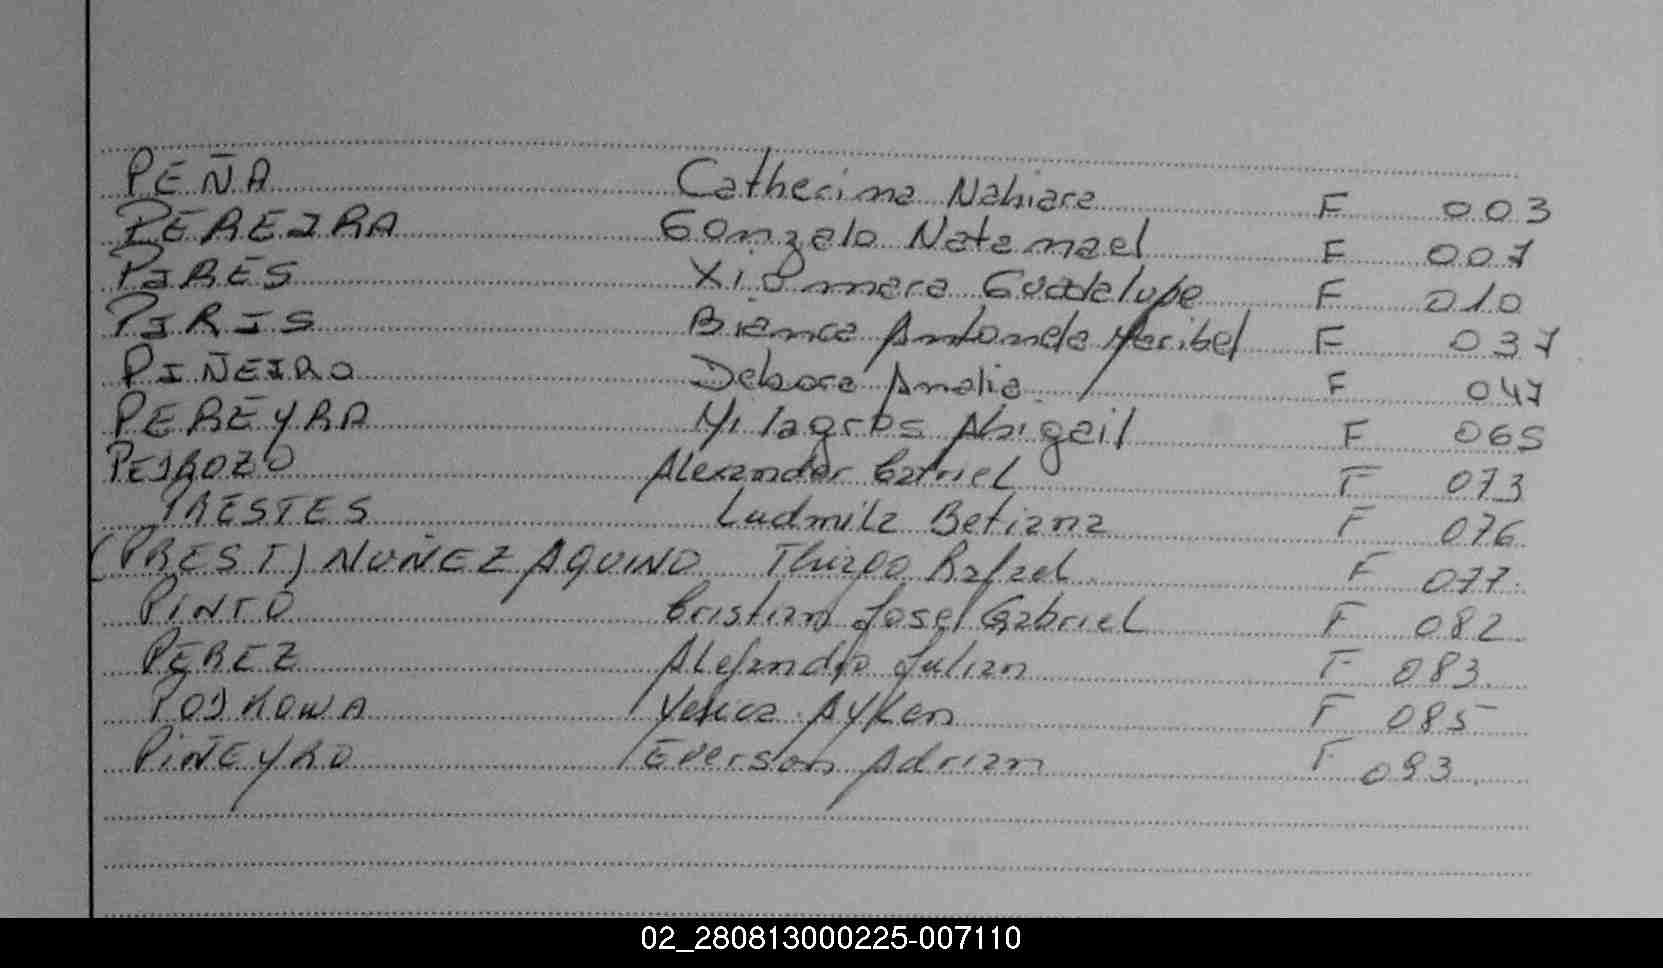 PEÑA Catherina Nahiara F 003
PEREIRA Gonzalo Natanael F 007
PIRES Xiommara Guadelupe F 010
PIRIS Bianca Antonela Maribel F 037
PIÑEIRO Debora Analia F 047
PEREYRA Milagros Abigail F 065
PEDROZO Alexander Gabriel F 073
PRESTES Ludmila Betiana F 076
(PREST) NUÑEZ AQUINO Rafael F 077
PINTO Cristian Jose Gabriel F 082
PEREZ Alejandro Julian F 083
Ayken F 085
PIÑEYRO Everson Adrian F 093
02_280813000225-007110